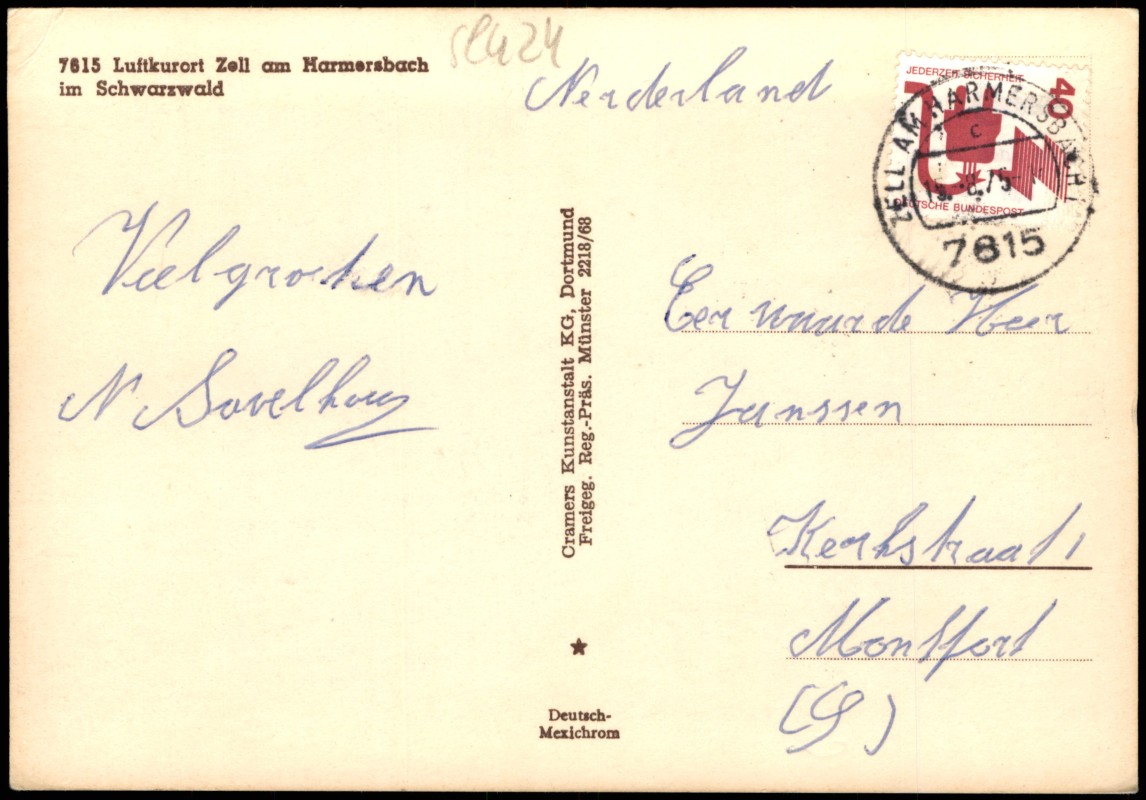 7615 Luftkurort Zell am Harmersbach
im Schwarzwald
Nerderland
JEDERZEIT SICHERHEIT
40
DEUTSCHE BUNDESPOST
ZELL AM HARMERSBACH
c
7615
Veel groeten
N
Cramers Kunstanstalt KG, Dortmund
Freigeg. Reg.-Präs. Münster 2218/68
Eer waarde Heer
Janssen
Kerkstraat 1
Montfort
Deutsch-
Mexichrom